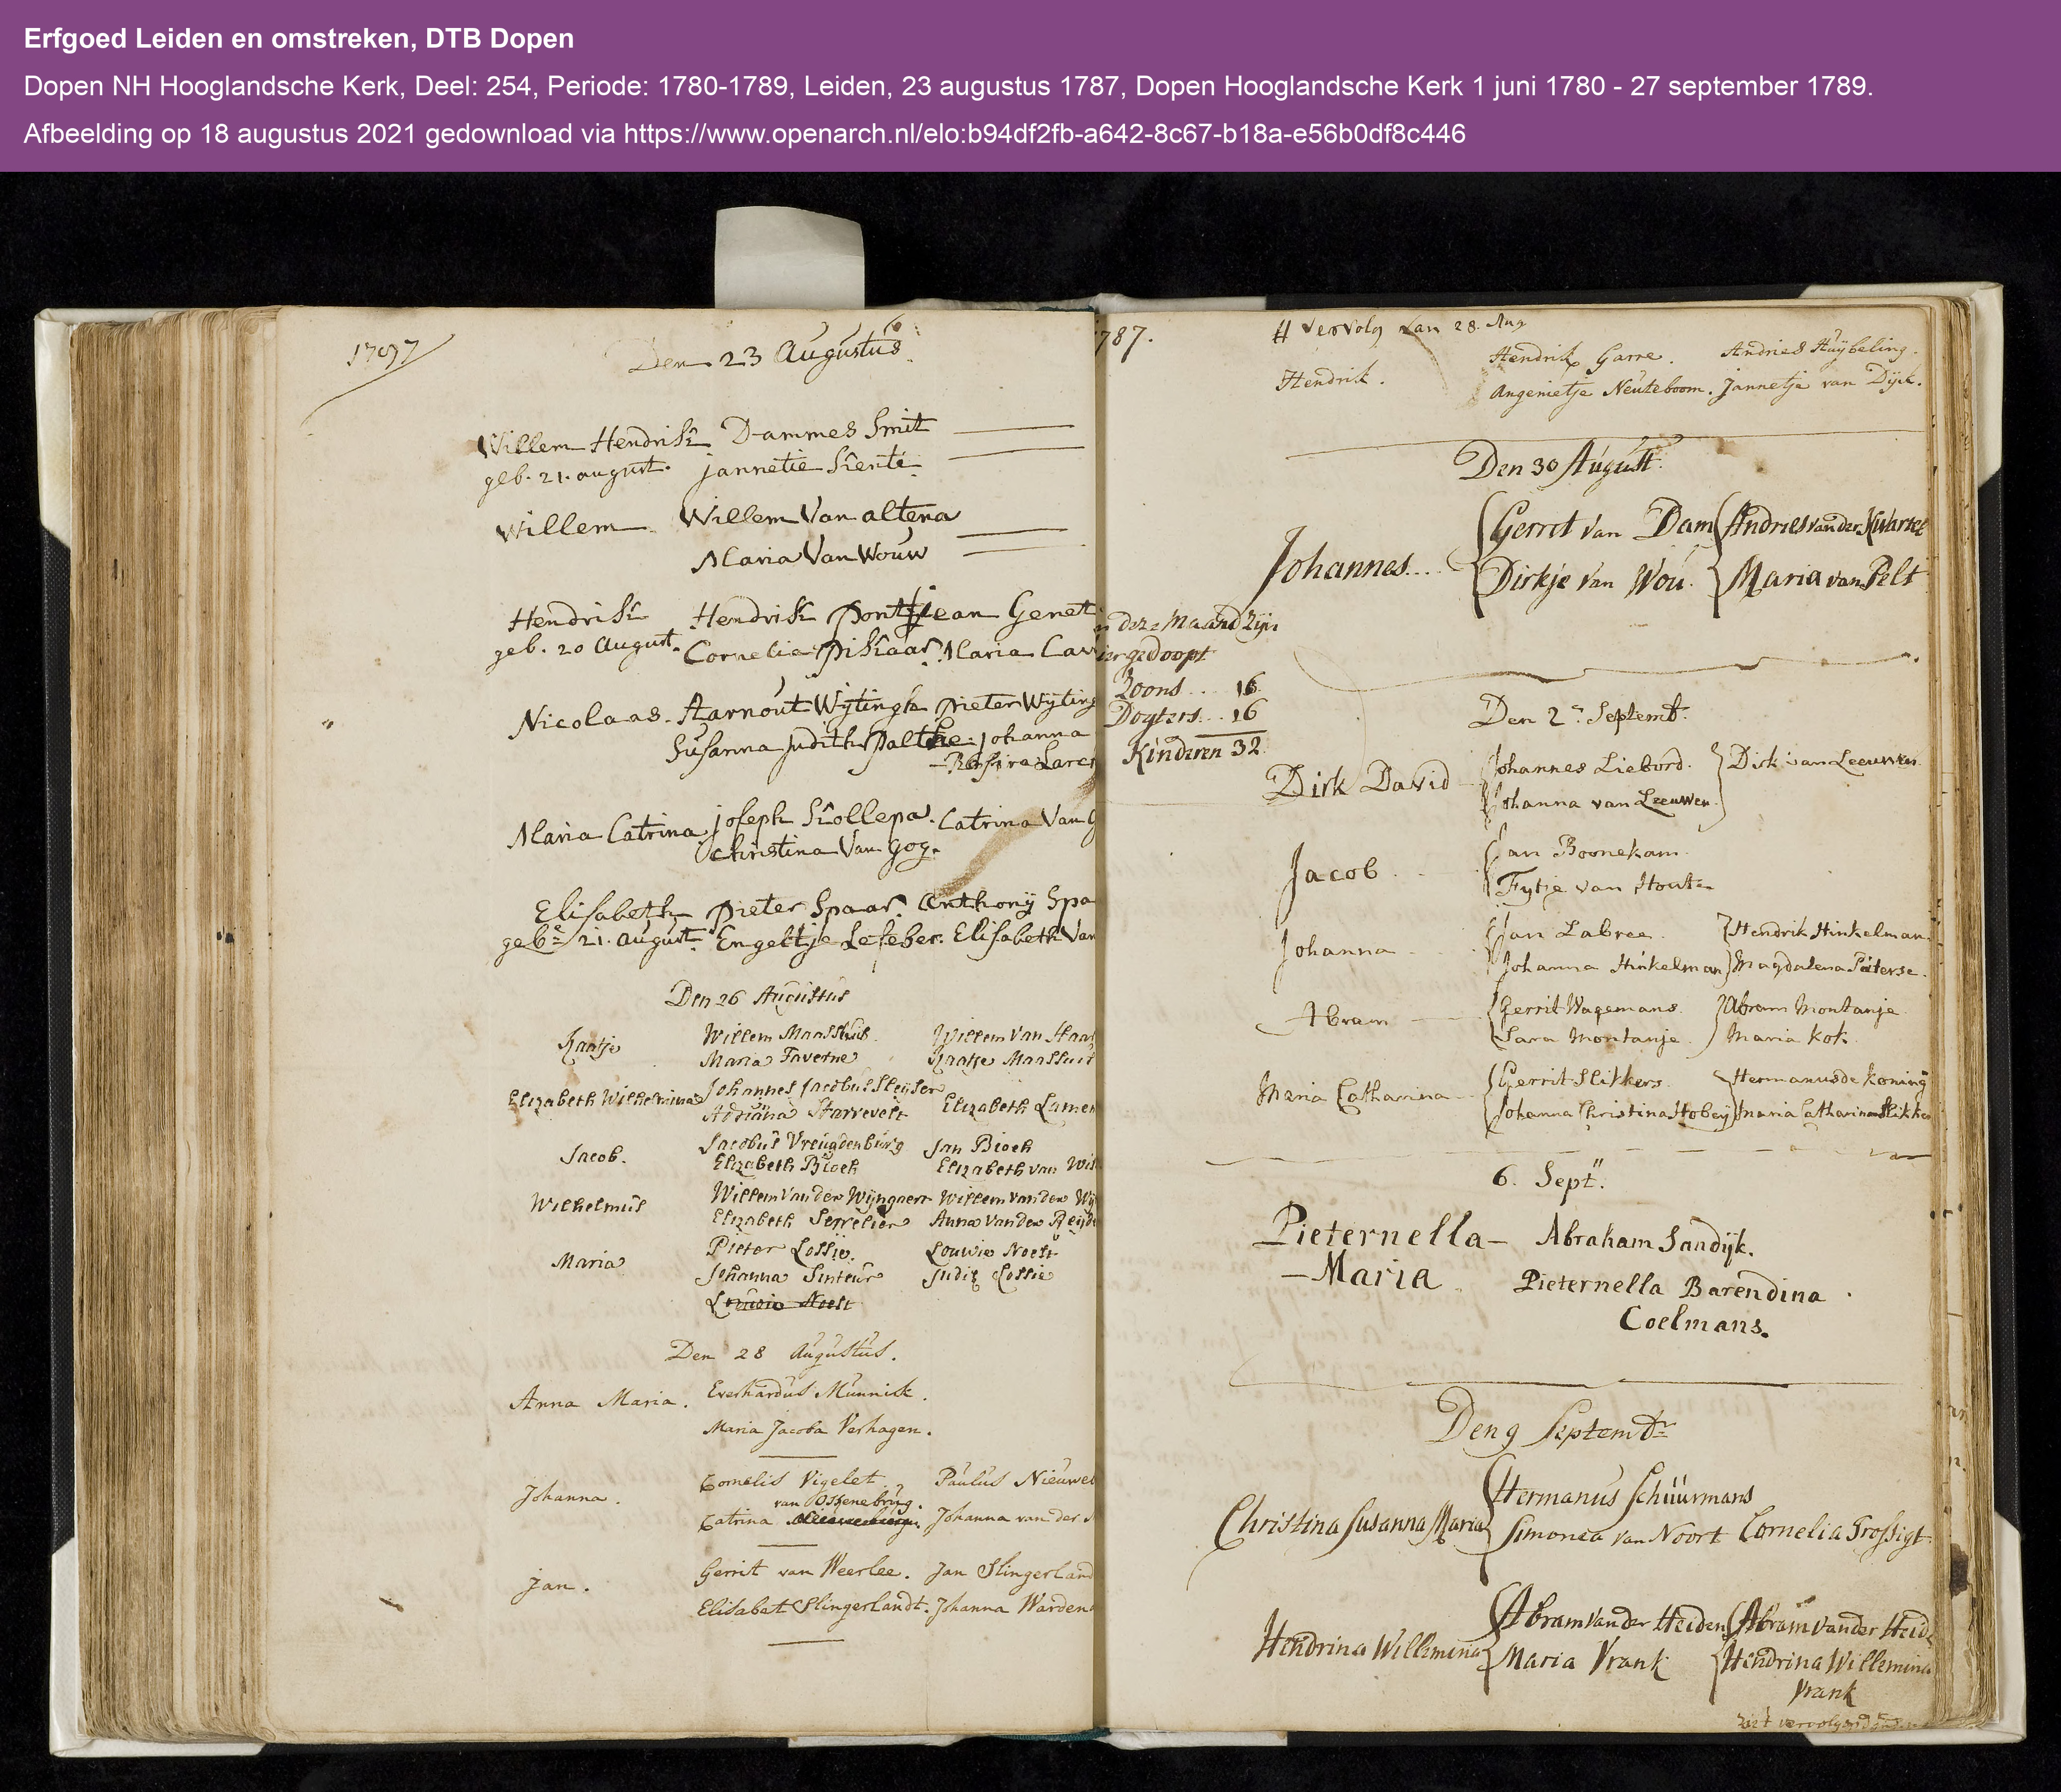 Erfgoed Leiden en omstreken, DTB Dopen
Dopen NH Hooglandsche Kerk, Deel: 254, Periode: 1780-1789, Leiden, 23 augustus 1787, Dopen Hooglandsche Kerk 1 juni 1780 - 27 september 1789.
Afbeelding op 18 augustus 2021 gedownload via https://www.openarch.nl/elo:b94df2fb-a642-8c67-b18a-e56b0df8c446
Den 23 Augustus
Willem Hendrik Dammes Smit
geb. 21. august. jannetie
Willem Willem Van altena
Maria Van Wouw
Hendrik Hendrik Pont jean Genet
geb. 20 August. Cornelia Pikaar. Maria
Nicolaas. Aarnout Wijtingh pieter Wijting
Susanna judith Palthe. johanna
Maria Catrina joseph Kollepa. Catrina Van
Christina Van Gog.
Elisabeth pieter Spaar. Anthonij Spa
geb. 21. august. Engeltje Lefeber. Elisabeth Van
Den 26 Augustus
Kaatje Willem Maasluis Willem Van Haas
Maria Taverne Kaatje Maasluis
Elizabeth Wilhelmina Johannes Jacobus Sleyser
Adriana Starrevelt Elizabeth Lamer
Jacob. Jacobus Vreugdenburg Jan Bloch
Elizabeth Bloch Elizabeth van
Wilhelmus Willem Van der Wijngaert Willem van der Wij
Elizabeth Serrelier Anna van der
Maria Pieter Lossie. Louwis Noest
Johanna Sinteur Judig Lossie
Louwis Noest
Den 28 Augustus.
Anna Maria. Everhardus Munnick.
Maria Jacoba Verhagen.
Johanna. Cornelis Vigelet Paulus Nieuwe
van Ossenebrug.
Catrina Johanna van der
Jan. Gerrit van Weerlee. Jan Slingerland
Elisabet Slingerlandt. Johanna Warden
787.
# vervolg van 28. Aug
Hendrik. Hendrik Garre. Andries Huijbeling.
Angenietje Neuteboom. Jannetje van Dijck.
Den 30 August.
Johannes... Gerret van Dam Andries van der Kwartel
Dirkje van Wou. Maria van Pelt
deze Maand Zijn
gedoopt
Zoons.. 16.
Dogters... 16
Kinderen 32.
Den 2 Septemb.
Dirk David Johannes Liebord. Dirk van Leeuwen
Johanna van Leeuwen.
Jacob Jan Boonekam
Fytje van Houten
Johanna Jan Labree Hendrik Hinkelman
Johanna Hinkelman Magdalena Pieterse.
Abram Gerrit Wagemans. Abram Montanje
Sara Montanje. Maria Kok.
Maria Catharina Gerrit Slikkers. Hermanus de Koning
Johanna Christina Hobeij Maria Catharina Slikke
6. Sept.
Pieternella – Abraham Sandijk.
– Maria Pieternella Barendina
Coelmans.
Den 9 Septembr
Hermanus Schuurmans
Christina Susanna Maria Simonea van Noort Cornelia Trossigt
Abram van der Heiden Abram van der Heid
Hendrina Willemina Maria Vrank Hendrina Willemina
Vrank